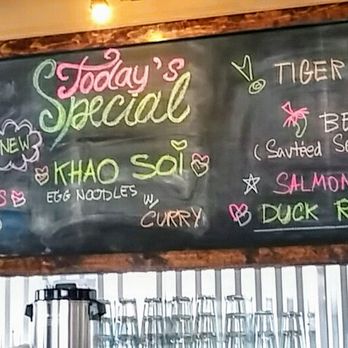 Today's
Special
NEW
KHAO SOI
EGG NOODLES
W/
CURRY
TIGER
BE
(Sautéed Se
SALMON
DUCK R